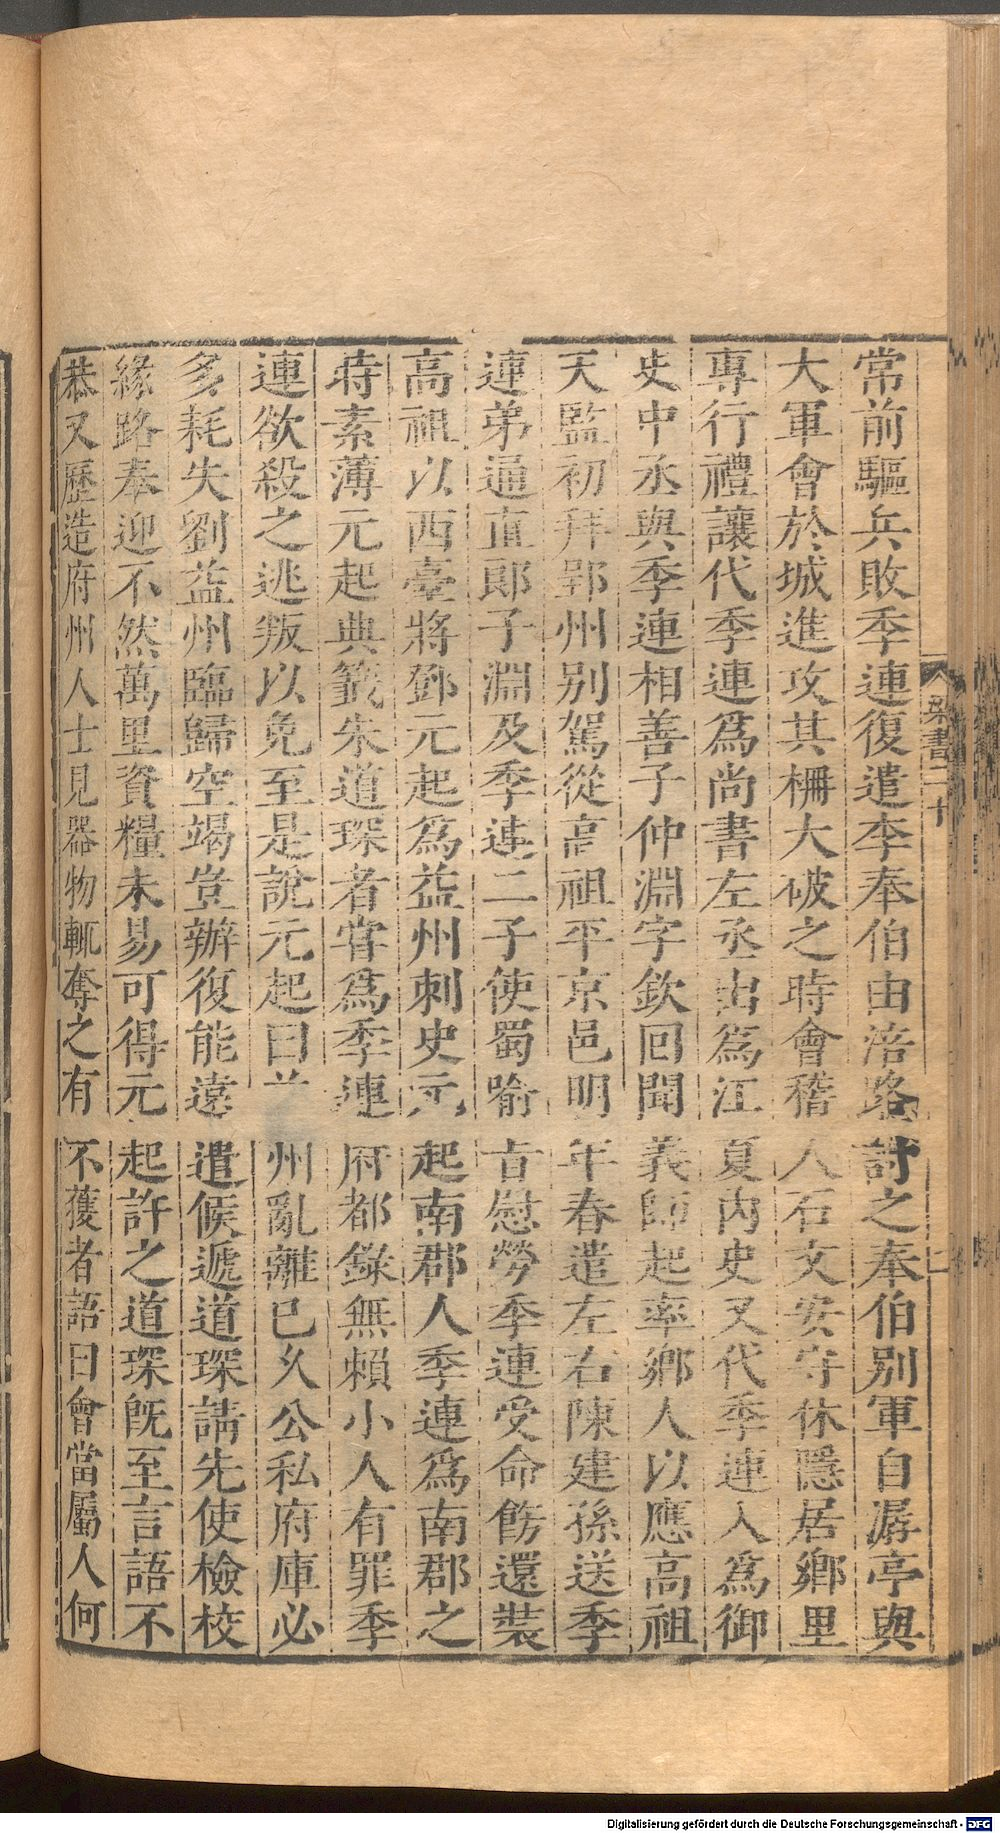 常前驅兵敗季連復遣李奉伯由涪路討之奉伯别軍自潺亭與
大軍會於城進攻其柵大破之時會稽人石文安字守休隱居鄉里
專行禮讓代季連爲尚書左丞出爲江夏内史又代季連入爲御
史中丞與季連相善子仲淵字欽回聞義師起率鄉人以應高祖
天監初拜郢州别駕從高祖平京邑明年春遣左右陳建孫送季
連弟通直郎子淵及季連二子使蜀喻旨慰勞季連受命飭還裝
高祖以西臺將鄧元起爲益州刺史元起南郡人季連爲南郡之
時素薄元起典籤朱道琛者嘗爲季連府都錄無賴小人有罪季
連欲殺之逃叛以免至是說元起曰益州亂離已久公私府庫必
多耗失劉益州臨歸空竭豈辦復能遠遣候遞道琛請先使檢校
緣路奉迎不然萬里資糧未易可得元起許之道琛既至言語不
恭又歷造府州人士見器物輒奪之有不獲者語曰會當屬人何
梁書二十
七
Digitalisierung gefördert durch die Deutsche Forschungsgemeinschaft - DFG